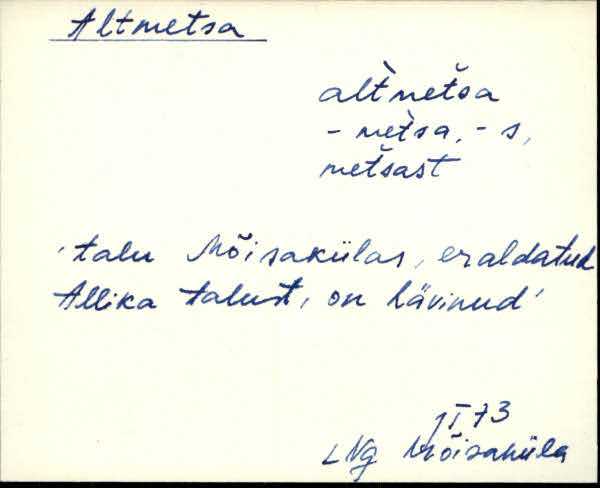 Altmetsa
alt̀metsa
- metsa, - s,
metsast
'talu Mõisakülas, eraldatud
Allika talust, on hävinud'
I 73
LNg Mõisaküla